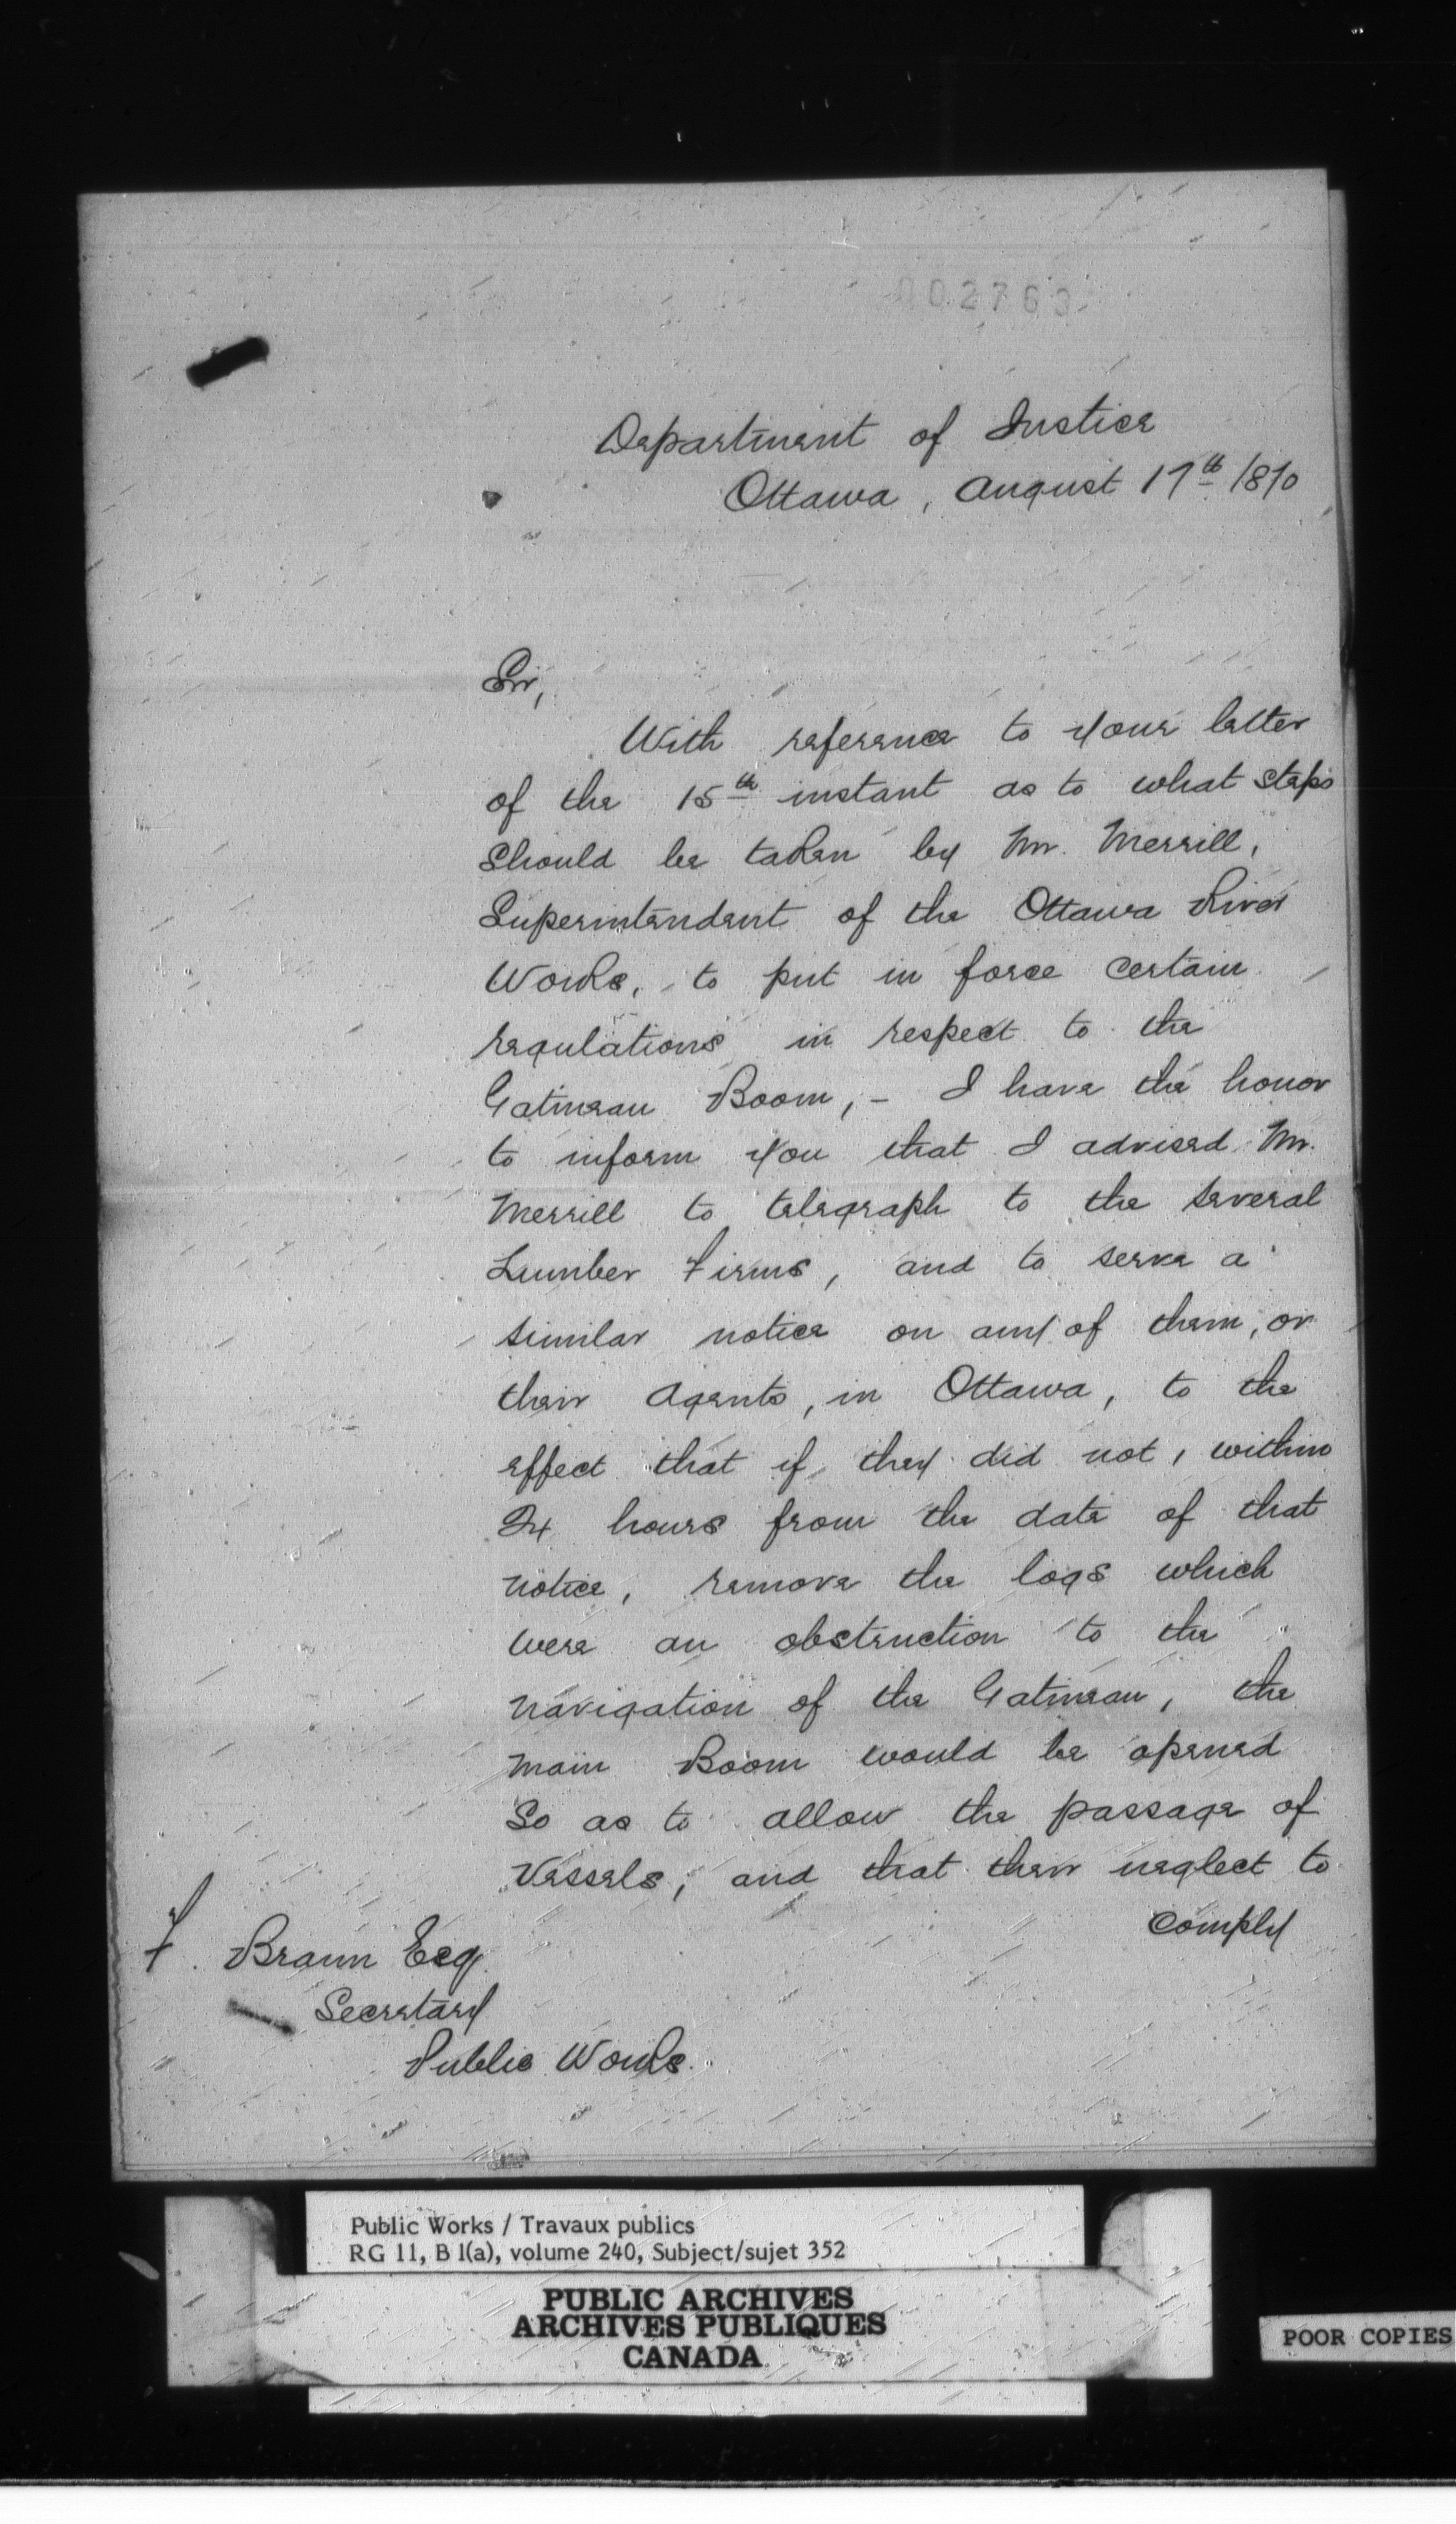 002763
Department of Justice
Ottawa, August 17th 1870
Sir,
With reference to your letter
of the 15th instant as to what steps
should be taken by Mr. Merrill,
Superintendent of the Ottawa River
Works, to put in force certain
regulations in respect to the
Gatineau Boom, - I have the honor
to inform you that I advised Mr.
Merrill to telegraph to the several
Lumber Firms, and to serve a
similar notice on any of them, or
their Agents, in Ottawa, to the
effect that if they did not, within
24 hours from the date of that
notice, remove the logs which
were an obstruction to the
navigation of the Gatineau, the
main Boom would be opened
so as to allow the passage of
Vessels; and that their neglect to
comply
F. Braun Esq.
Secretary
Public Works.
Public Works / Travaux publics
RG 11, B 1(a), volume 240, Subject/sujet 352
PUBLIC ARCHIVES
ARCHIVES PUBLIQUES
CANADA
POOR COPIES